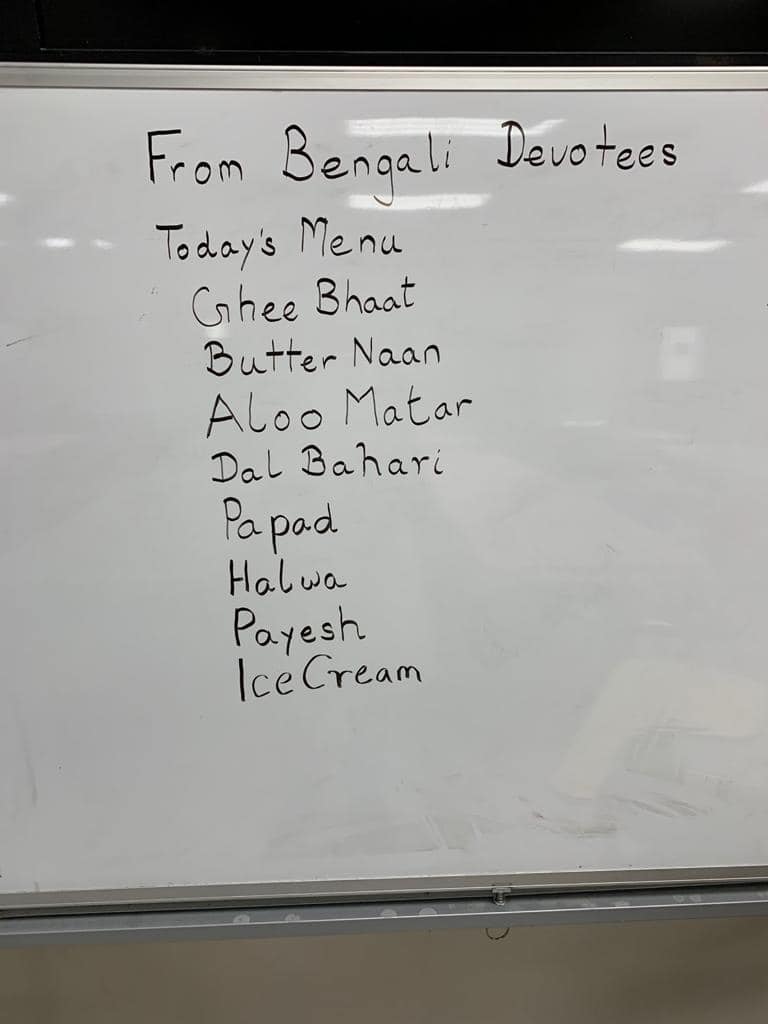 From Bengali Devotees
Today's Menu
Ghee Bhaat
Butter Naan
Aloo Matar
Dal Bahari
Papad
Halwa
Payesh
Ice Cream